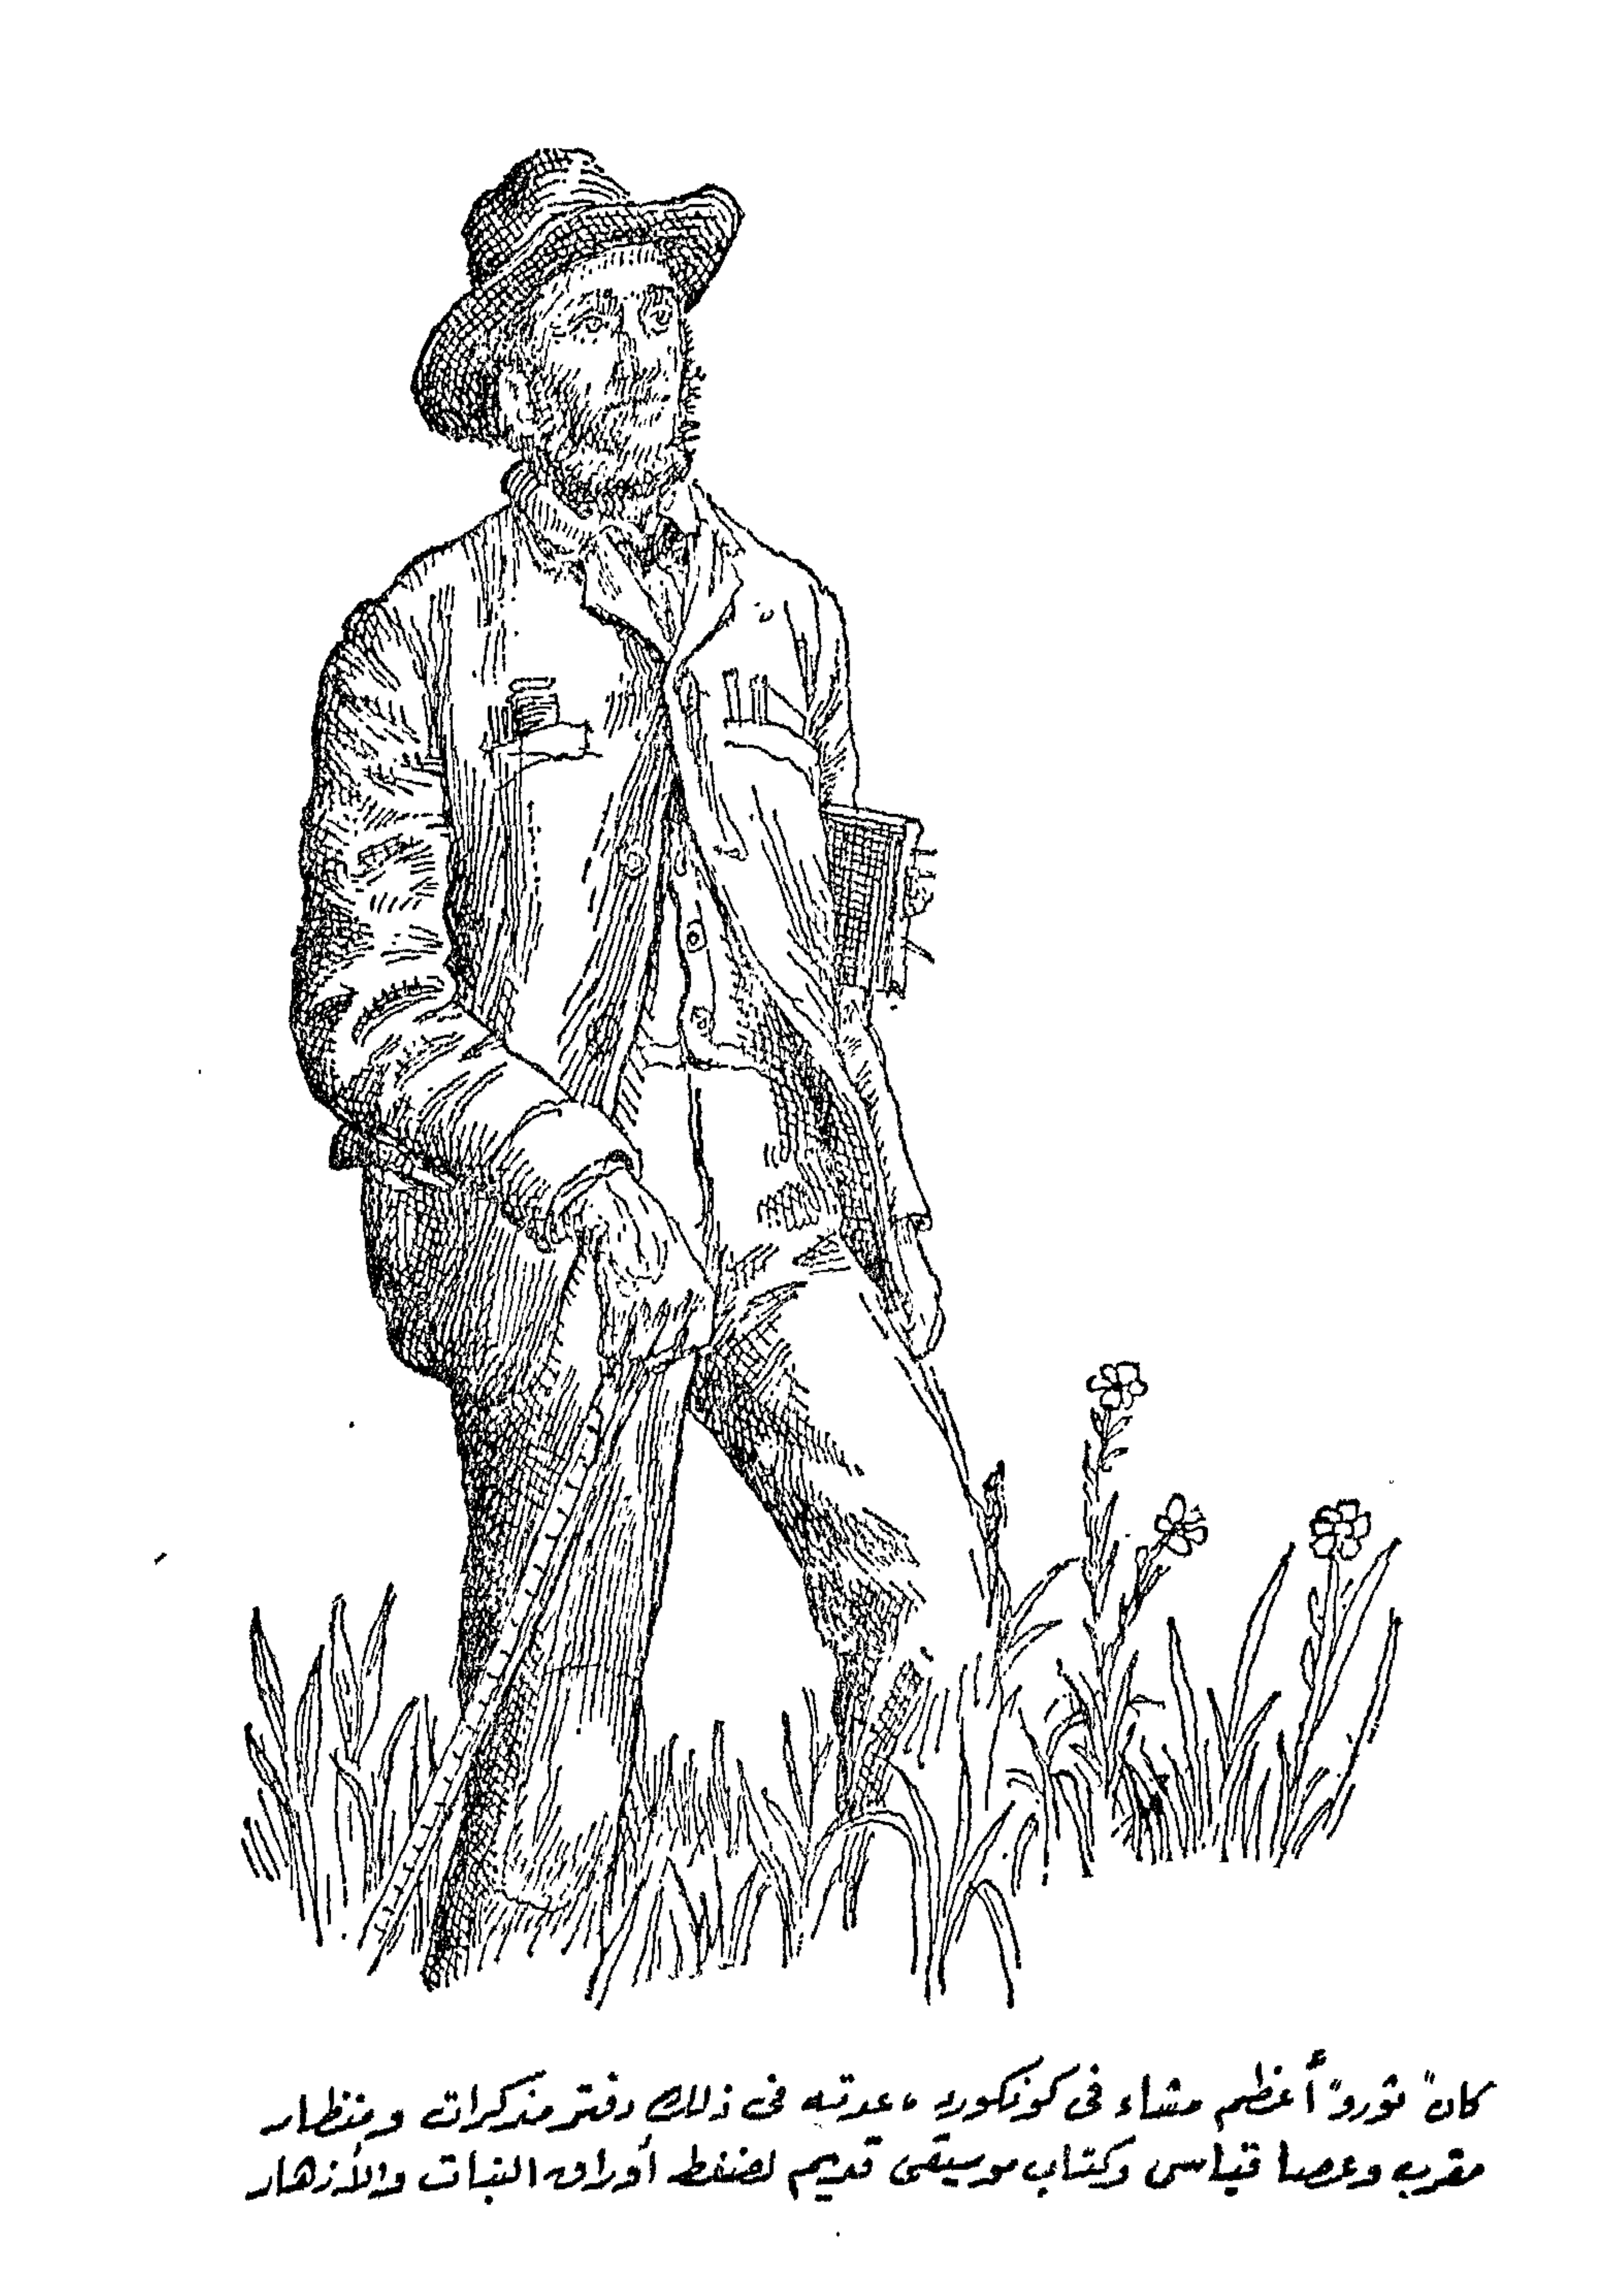 كان "ثورو" أعظم مشاء فى كونكورد، عدته فى ذلك دفتر مذكرات ومنظار
مقرب وعصا قياس وكتاب موسيقى قديم لضغط أوراق النبات والأزهار